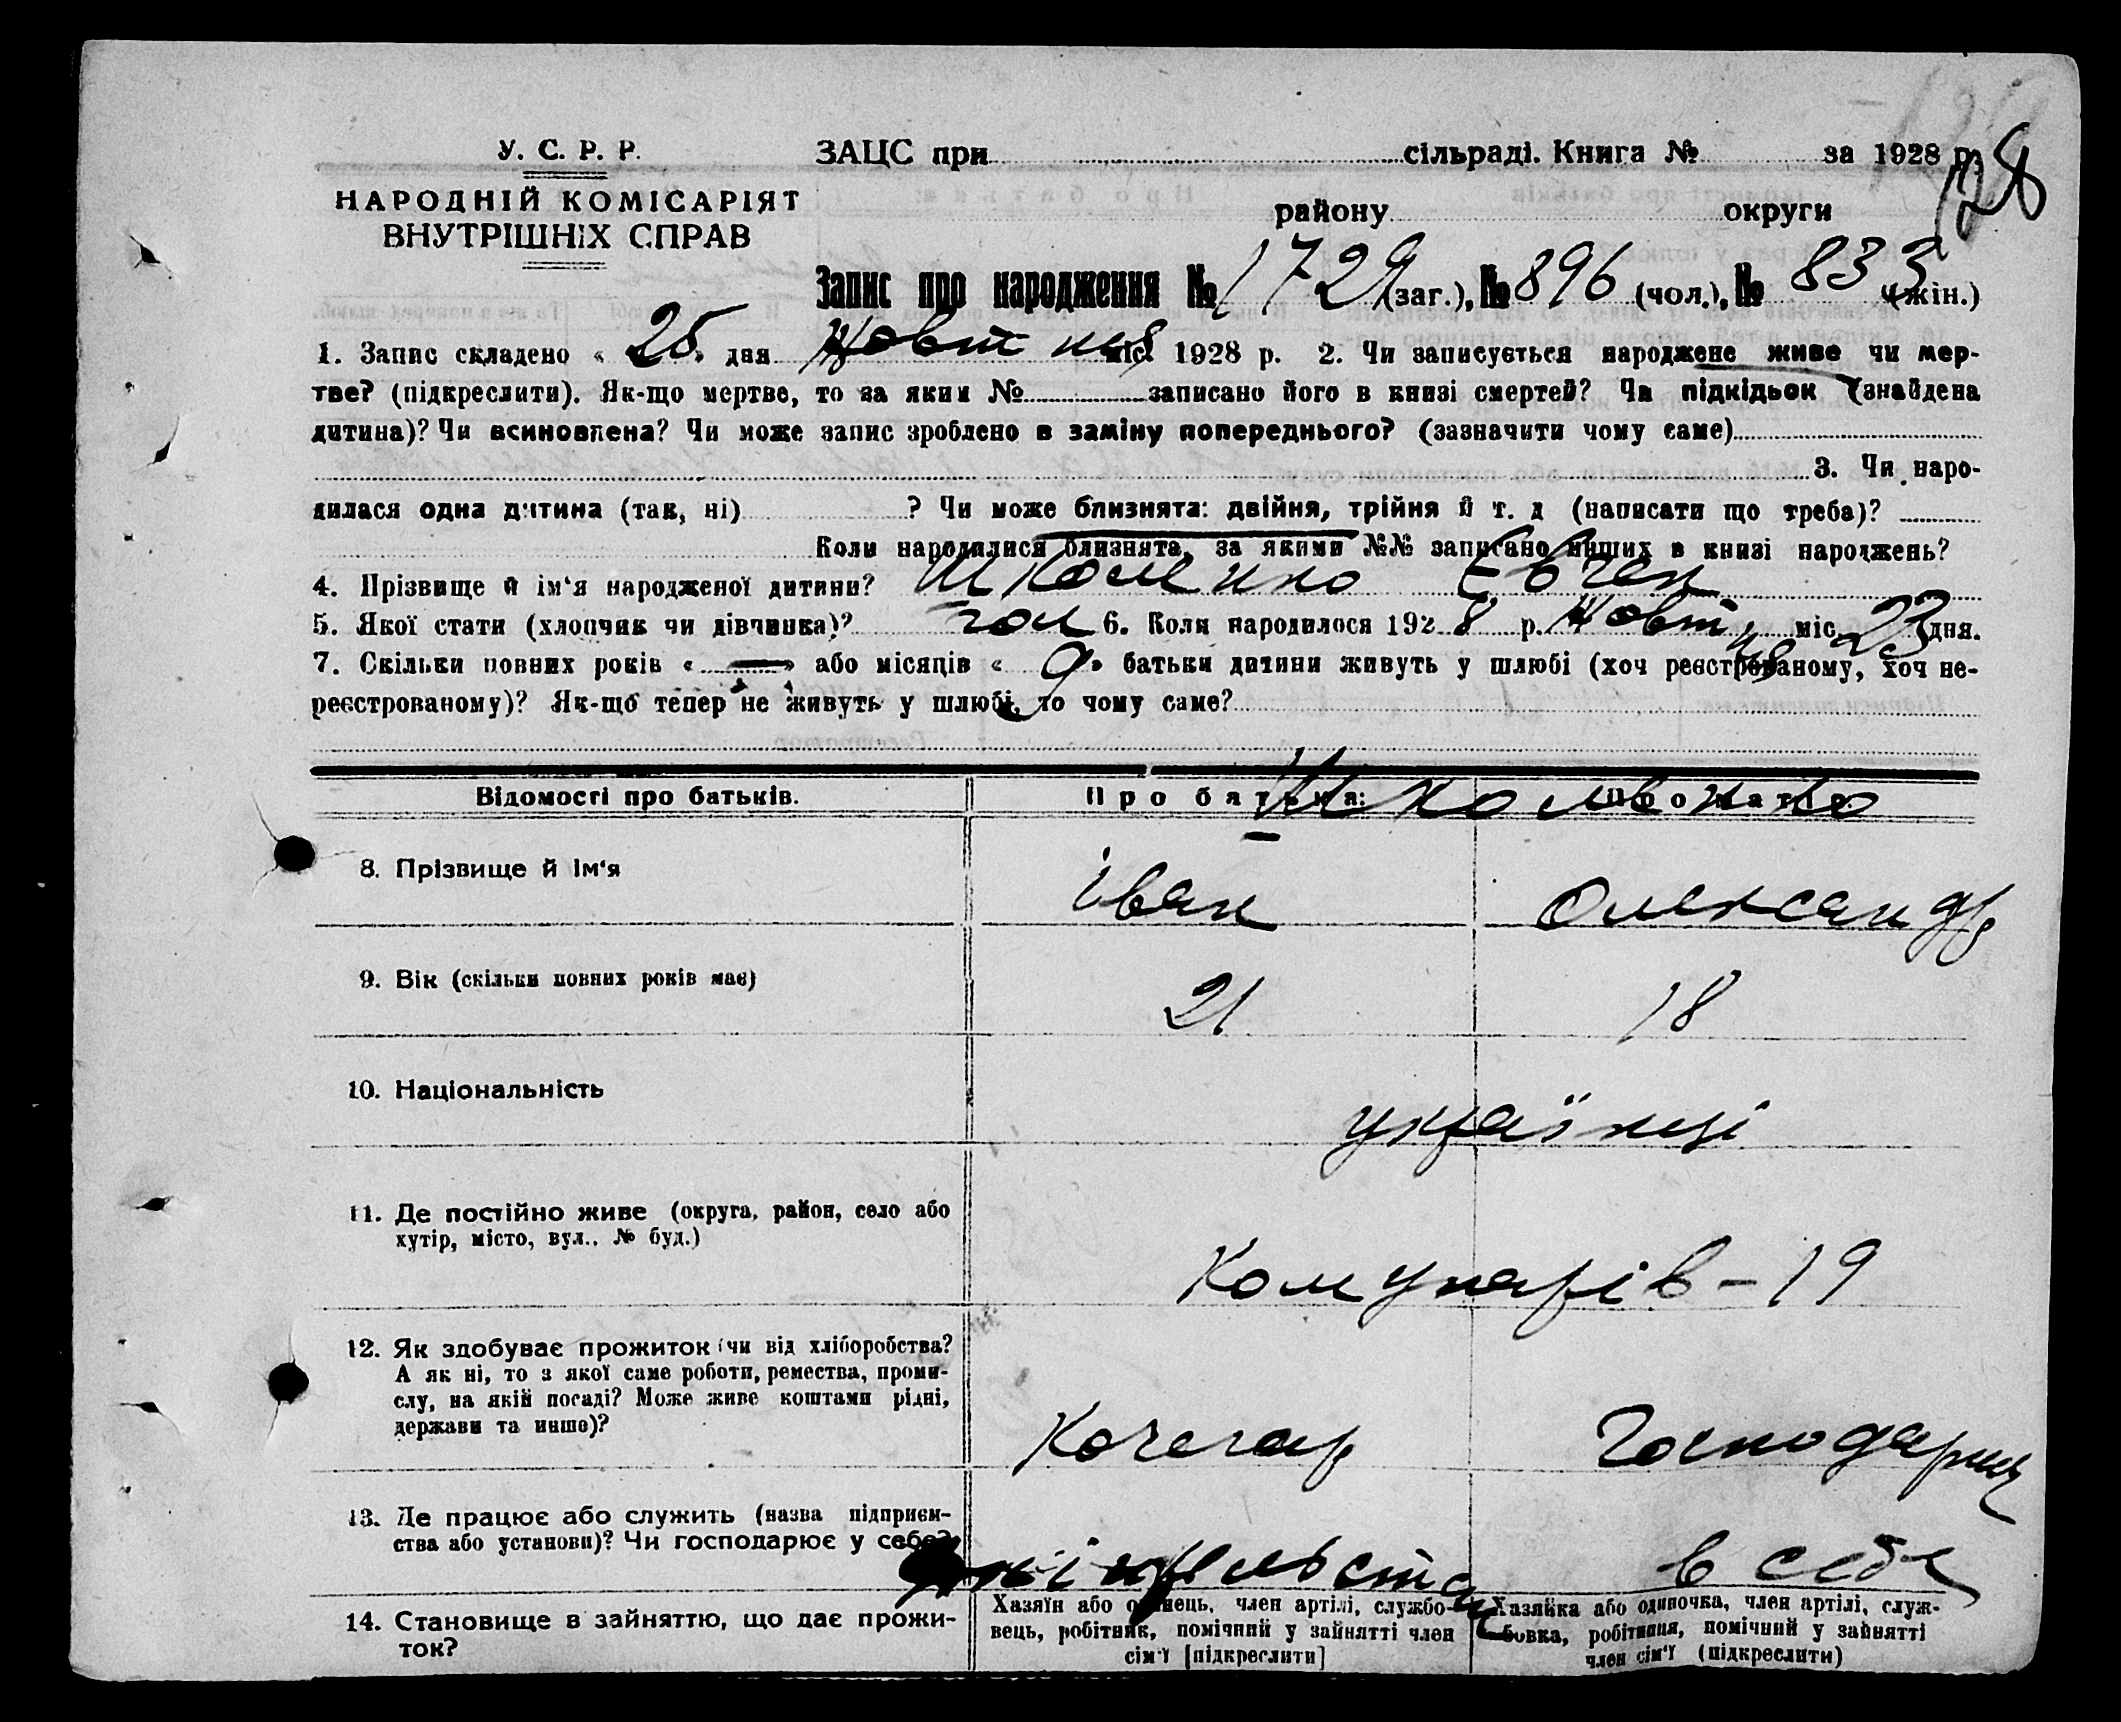 128
У. С. Р. Р.
НАРОДНІЙ КОМІСАРІЯТ
ВНУТРІШНІХ СПРАВ
ЗАЦС при сільраді. Книга № за 1928 р.
району округи
Запис про народження № 1729 (заг.), № 896 (чол.), № 833 (жін.)
1. Запис складено « 25 » дня Жовтня міс. 1928 р. 2. Чи записується народжене живе чи мер-
тве? (підкреслити). Як-що мертве, то за яким № записано його в книзі смертей? Чи підкідьок (знайдена
дитина)? Чи всиновлена? Чи може запис зроблено в заміну попереднього? (зазначити чому саме)
3. Чи наро-
дилася одна дитина (так, ні) ? Чи може близнята: двійня, трійня й т. д (написати що треба)?
Коли народилися близнята, за якими №№ записано инших в книзі народжень?
4. Прізвище й ім‘я народженої дитини? Евген
5. Якої стати (хлопчик чи дівчинка)? чол 6. Коли народилося 192 8 р. Жовтня міс. 23 дня.
7. Скільки повних років « — » або місяців « 9 » батьки дитини живуть у шлюбі (хоч реєстрованому, хоч не-
реєстрованому)? Як-що тепер не живуть у шлюбі, то чому саме?
Відомості про батьків. Про батька: Про матір:
8. Прізвище й ім‘я Іван Олександр
9. Вік (скільки повних років має) 21 18
10. Національність українці
11. Де постійно живе (округа, район, село або
хутір, місто, вул., № буд.)
Комунарів - 19
12. Як здобуває прожиток (чи від хліборобства?
А як ні, то з якої саме роботи, ремества, проми-
слу, на якій посаді? Може живе коштами рідні,
держави та инше)?
Кочегар Господарює
13. Де працює або служить (назва підприєм-
ства або установи)? Чи господарює у себе?
в себе
14. Становище в зайняттю, що дає прожи-
ток?
Хазяїн або одинець, член артілі, службо-
вець, робітник, помічний у зайнятті член
сім‘ї [підкреслити]
Хазяйка або одиночка, член артілі, служ-
бовка, робітниця, помічний у зайнятті
член сім‘ї (підкреслити)